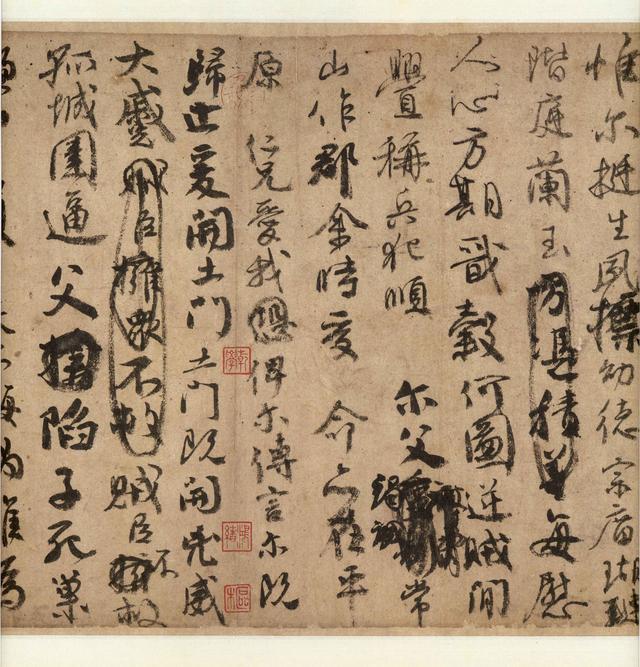 惟爾挺生夙標幼德宗廟瑚璉
階庭蘭玉方憑積善每慰
人心方期戩穀何圖逆賊閒
舋稱兵犯順爾父竭誠常
山作郡余時受命亦在平
原仁兄愛我恐俾爾傳言爾既
歸止爰開土門土門既開凶威
大蹙賊臣擁衆不救賊臣不救
孤城圍逼父陷子死巢